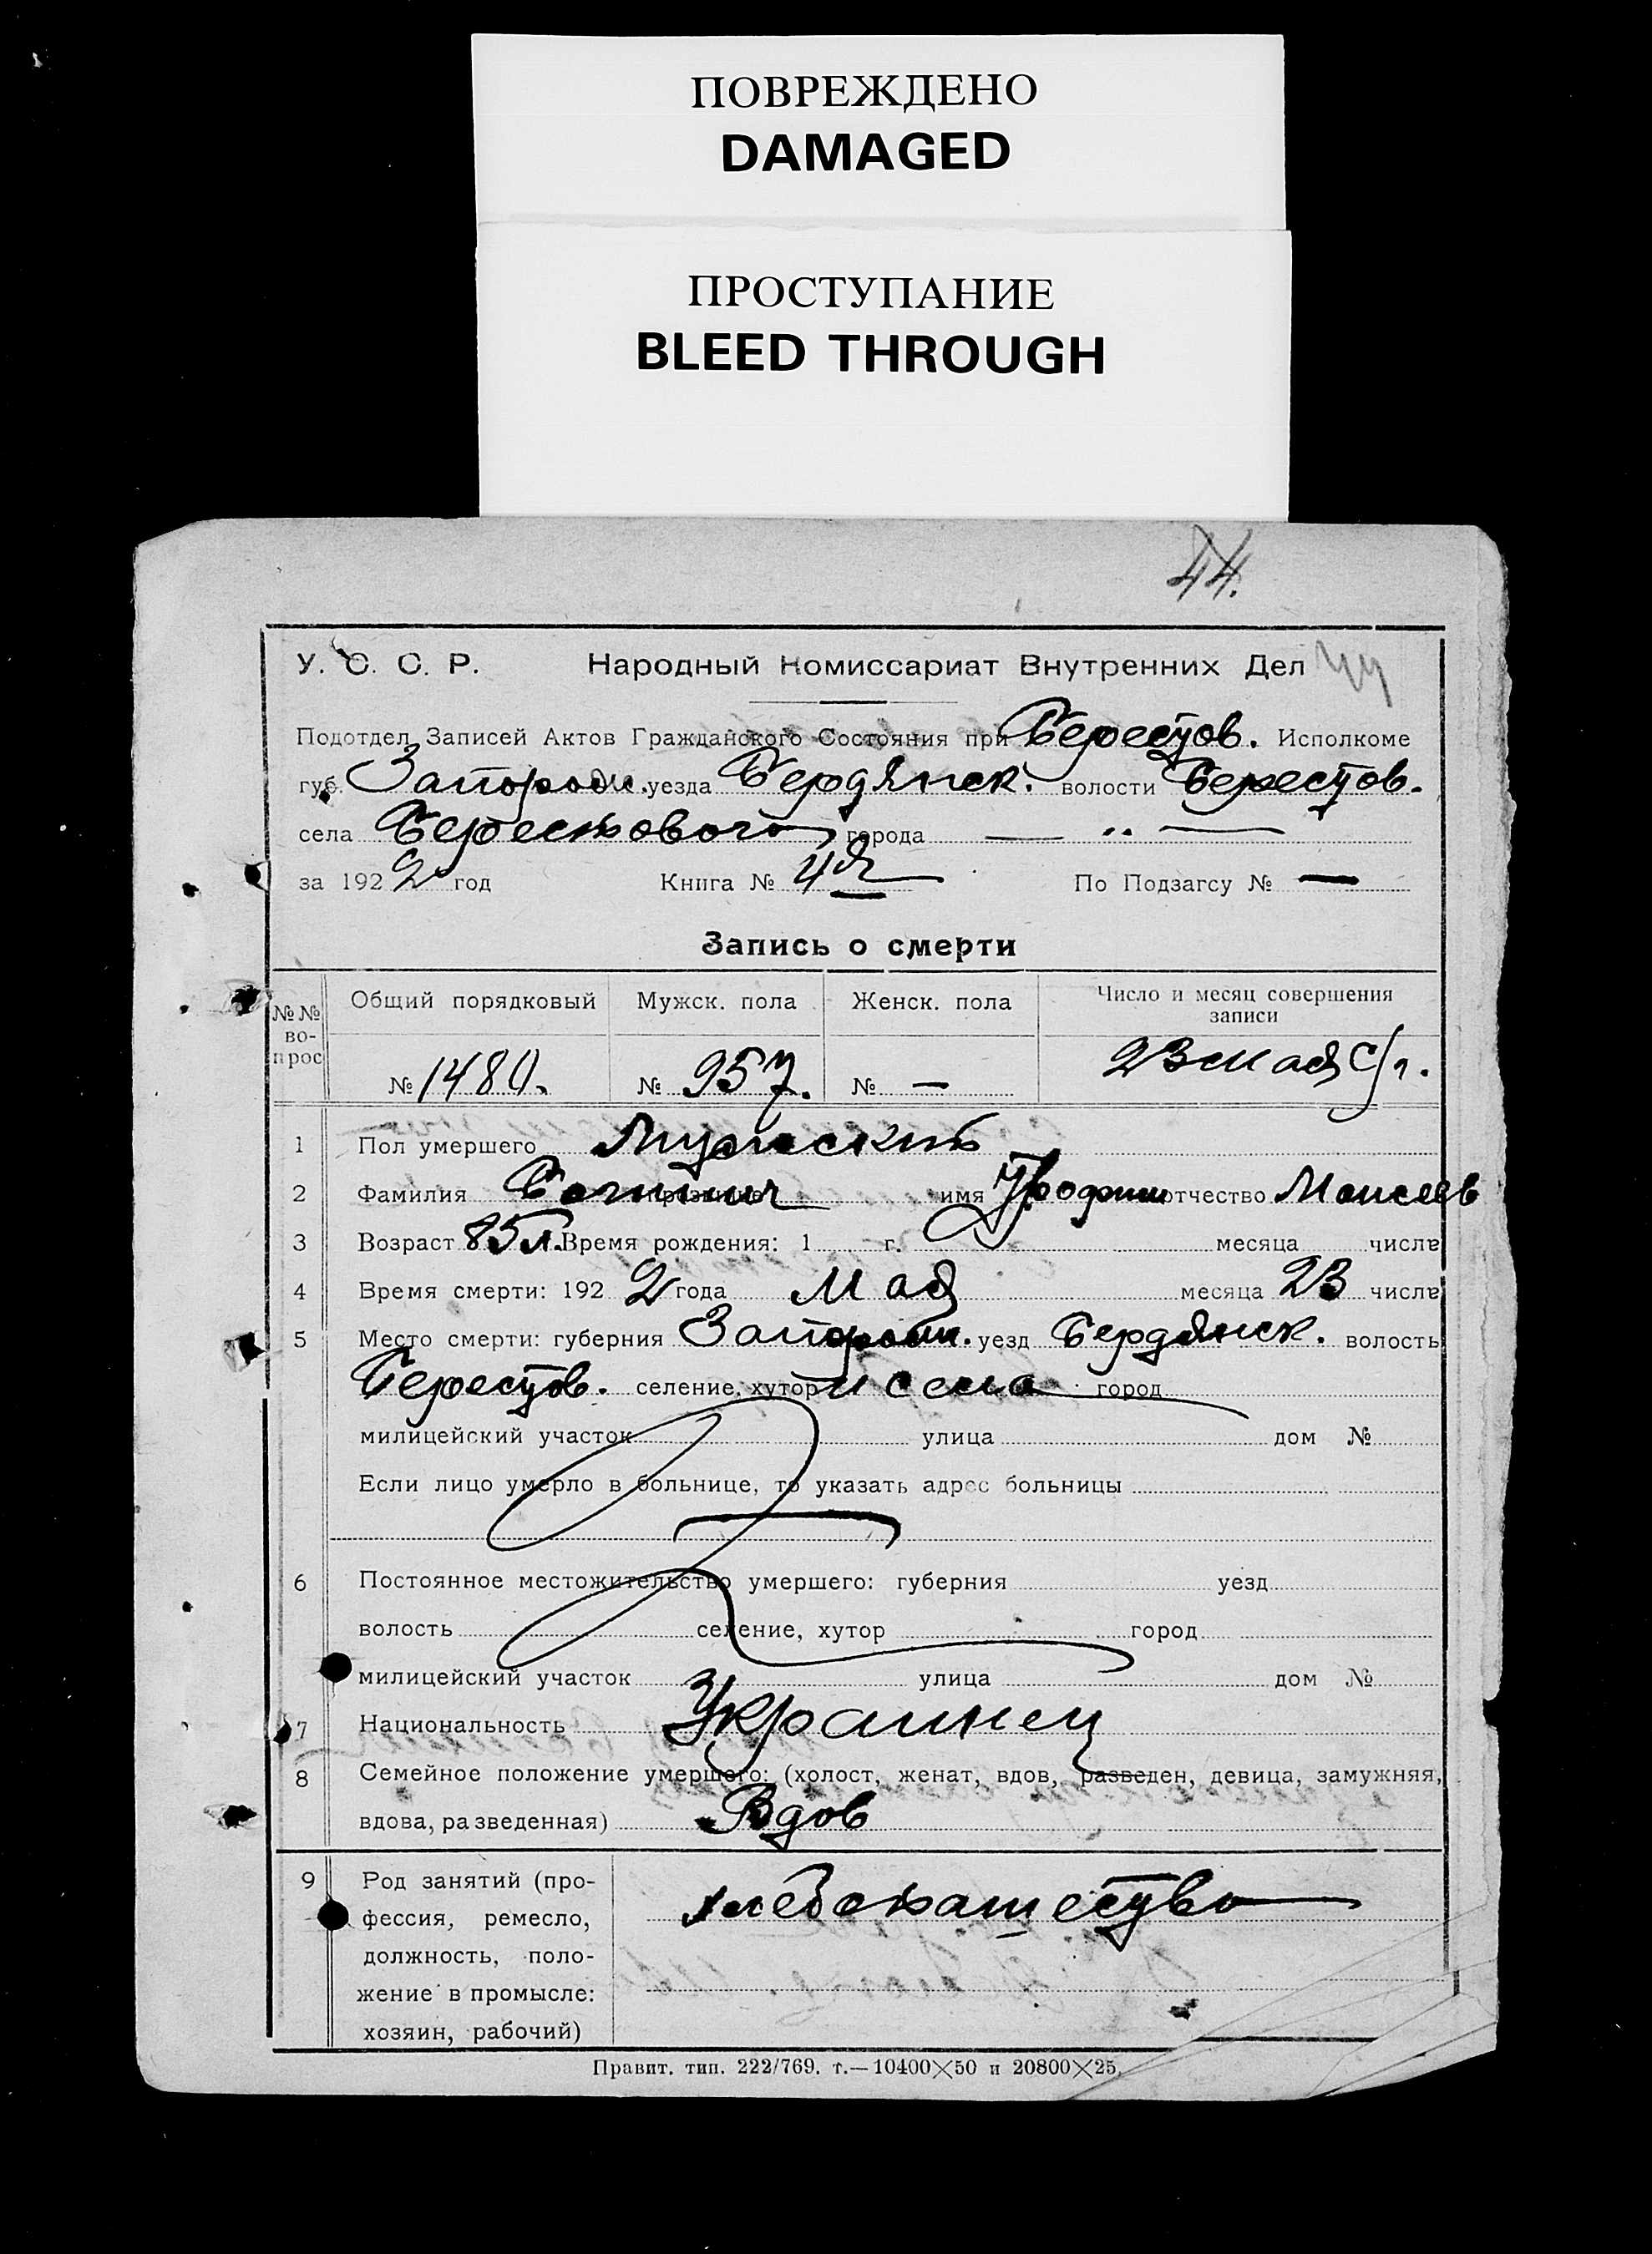 ПОВРЕЖДЕНО
DAMAGED
ПРОСТУПАНИЕ
BLEED THROUGH
44.
У. С. С. Р. Народный Комиссариат Внутренних Дел 44
Подотдел Записей Актов Гражданского Состояния при Берестов. Исполкоме
губ. Запорож. уезда Бердянск. волости Берестов.
села Берестового города — " —
за 1922 год Книга № 4я По Подзагсу № —
Запись о смерти
№№ во-прос Общий порядковый Мужск. пола Женск. пола Число и месяц совершения записи
№ 1480. № 957. № — 23 мая с/г.
1 Пол умершего Мужской
2 Фамилия прозвище имя Трофим отчество Моисеев
3 Возраст 85 л. Время рождения: 1 г. месяца числа
4 Время смерти: 1922 года Мая месяца 23 числа
5 Место смерти: губерния Запорож. уезд Бердянск. волость
Берестов. селение, хутор и село город
милицейский участок улица дом №
Если лицо умерло в больнице, то указать адрес больницы
6 Постоянное местожительство умершего: губерния уезд
волость селение, хутор город
милицейский участок улица дом №
7 Национальность Украинец
8 Семейное положение умершего: (холост, женат, вдов, разведен, девица, замужняя,
вдова, разведенная) Вдов
9 Род занятий (про-
фессия, ремесло, хлебопашество
должность, поло-
жение в промысле:
хозяин, рабочий)
Правит. тип. 222/769. т.—10400×50 и 20800×25.